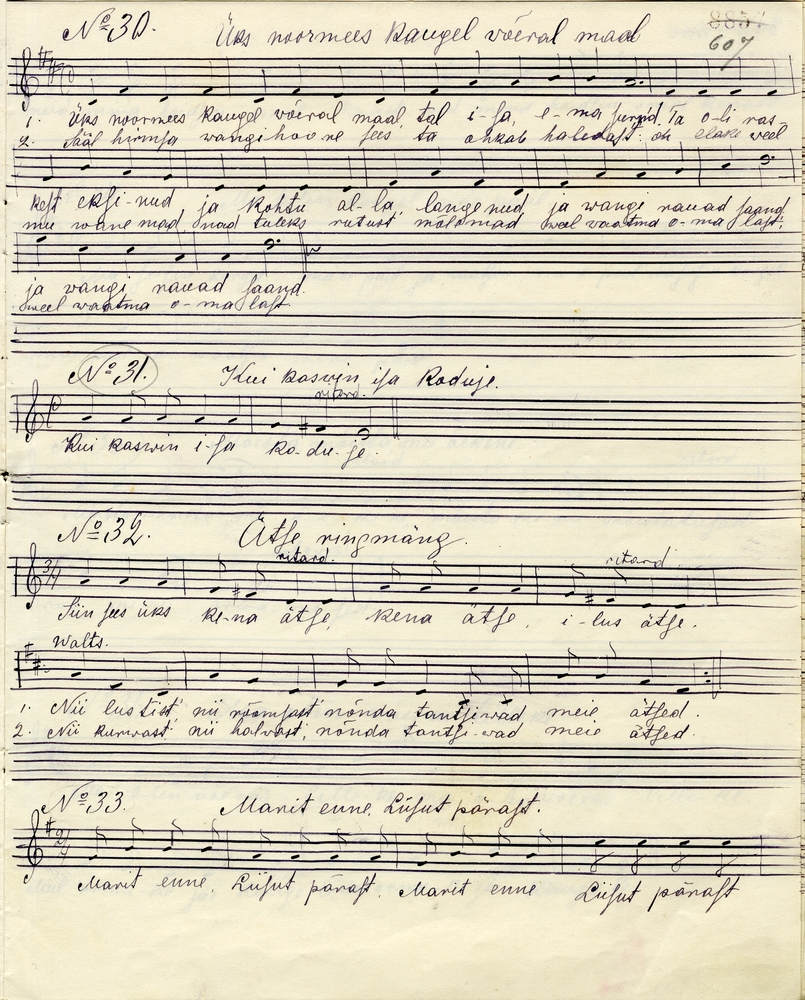 № 30. Üks noormees kaugel võeral maal
607
1. Üks noormees kaugel võeral maal, tal i-sa, e-ma surnd. Ta o-li ras-
2. Sääl hirmsa wangihoone sees, ta ohkab haledast: oh elaks weel
kest eksi-nud ja kohtu al-la lange nud, ja wangi rauad saand
mu wane mad, nad tuleks rutust mõlemad weel waatma o-ma last;
ja wangi rauad saand.
weel waatma o-ma last.
№ 31. Kui kaswin isa koduje.
ritard.
Kui kaswin i-sa ko-du-je.
№ 32. Ätse ringmäng.
ritard. ritard
Siin sees üks ke-na ätse, kena ätse, i-lus ätse.
walts.
1. Nii lustist, nii rõõmsast nõnda tantsiwad meie ätsed.
2. Nii kurwast, nii halwast, nõnda tantsi-wad meie ätsed.
№ 33. Marit enne, Liisut pärast.
Marit enne, Liisut pärast, Marit enne Liisut pärast